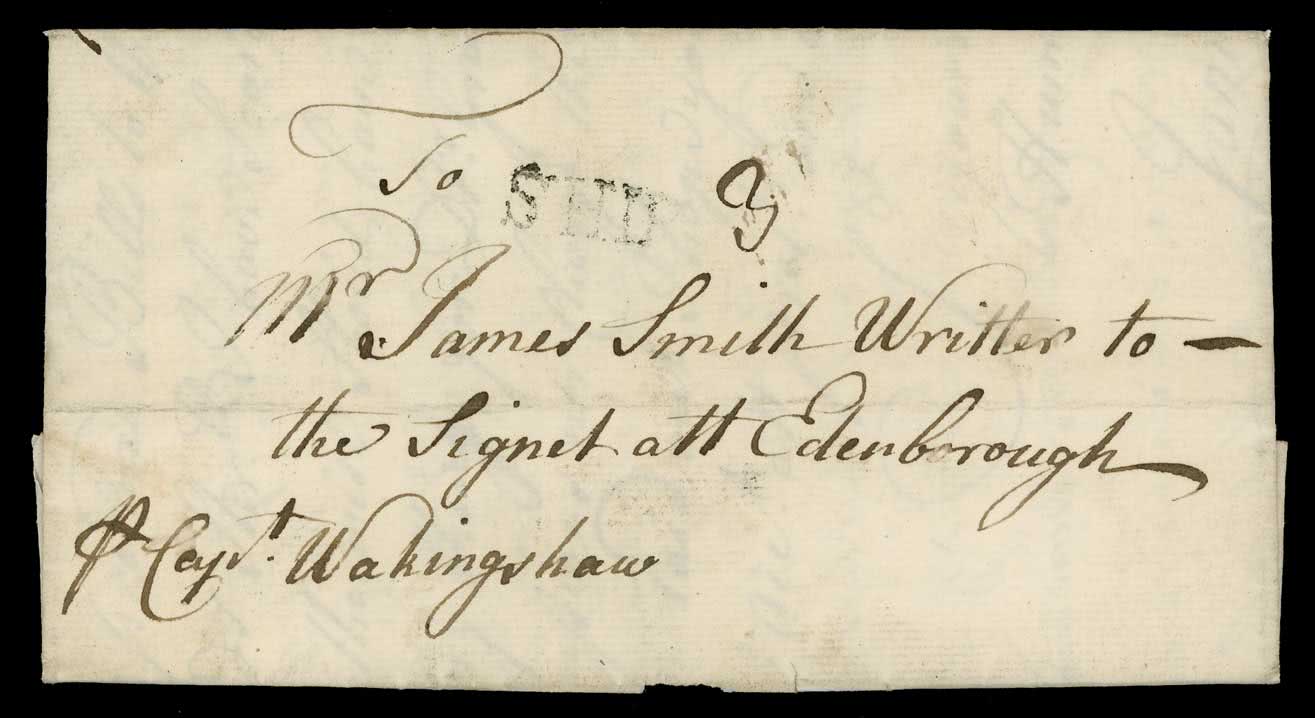 To SHD 3
Mr James Smith Writter to —
the Signet att Edenborough
₱ Capt. Wakingshaw